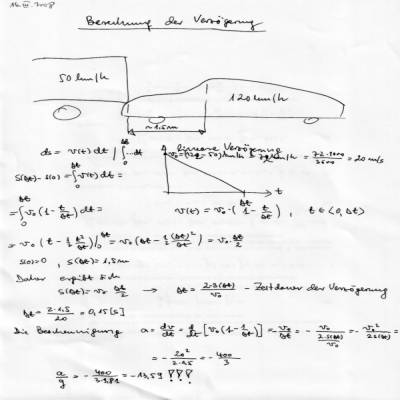 14.III.2008
Berechnung der Verzögerung
50 km/h
120 km/h
~1,5m
ds = v(t) dt | ∫₀^Δt ... dt
lineare Verzögerung
v₀ = (120 - 50) km/h = 72 km/h = 72·1000/3600 = 20 m/s
s(Δt) - s(0) = ∫₀^Δt v(t) dt =
t
= ∫₀^Δt v₀ (1 - t/Δt) dt =
v(t) = v₀ · (1 - t/Δt) , t ∈ <0, Δt>
= v₀ (t - 1/2 t²/Δt) |₀^Δt = v₀ (Δt - 1/2 (Δt)²/Δt) = v₀ · Δt/2
s(0) = 0 , s(Δt) = 1,5m
Daher ergibt sich
s(Δt) = v₀ Δt/2 → Δt = 2·s(Δt)/v₀ - Zeitdauer der Verzögerung
Δt = 2·1,5/20 = 0,15 [s]
Die Beschleunigung a = dv/dt = d/dt [v₀ (1 - t/Δt)] = - v₀/Δt = - v₀/(2·s(Δt)/v₀) = - v₀²/2s(Δt)
= - 20²/2·1,5 = - 400/3
a/g = - 400/3·9,81 = -13,59 !!!